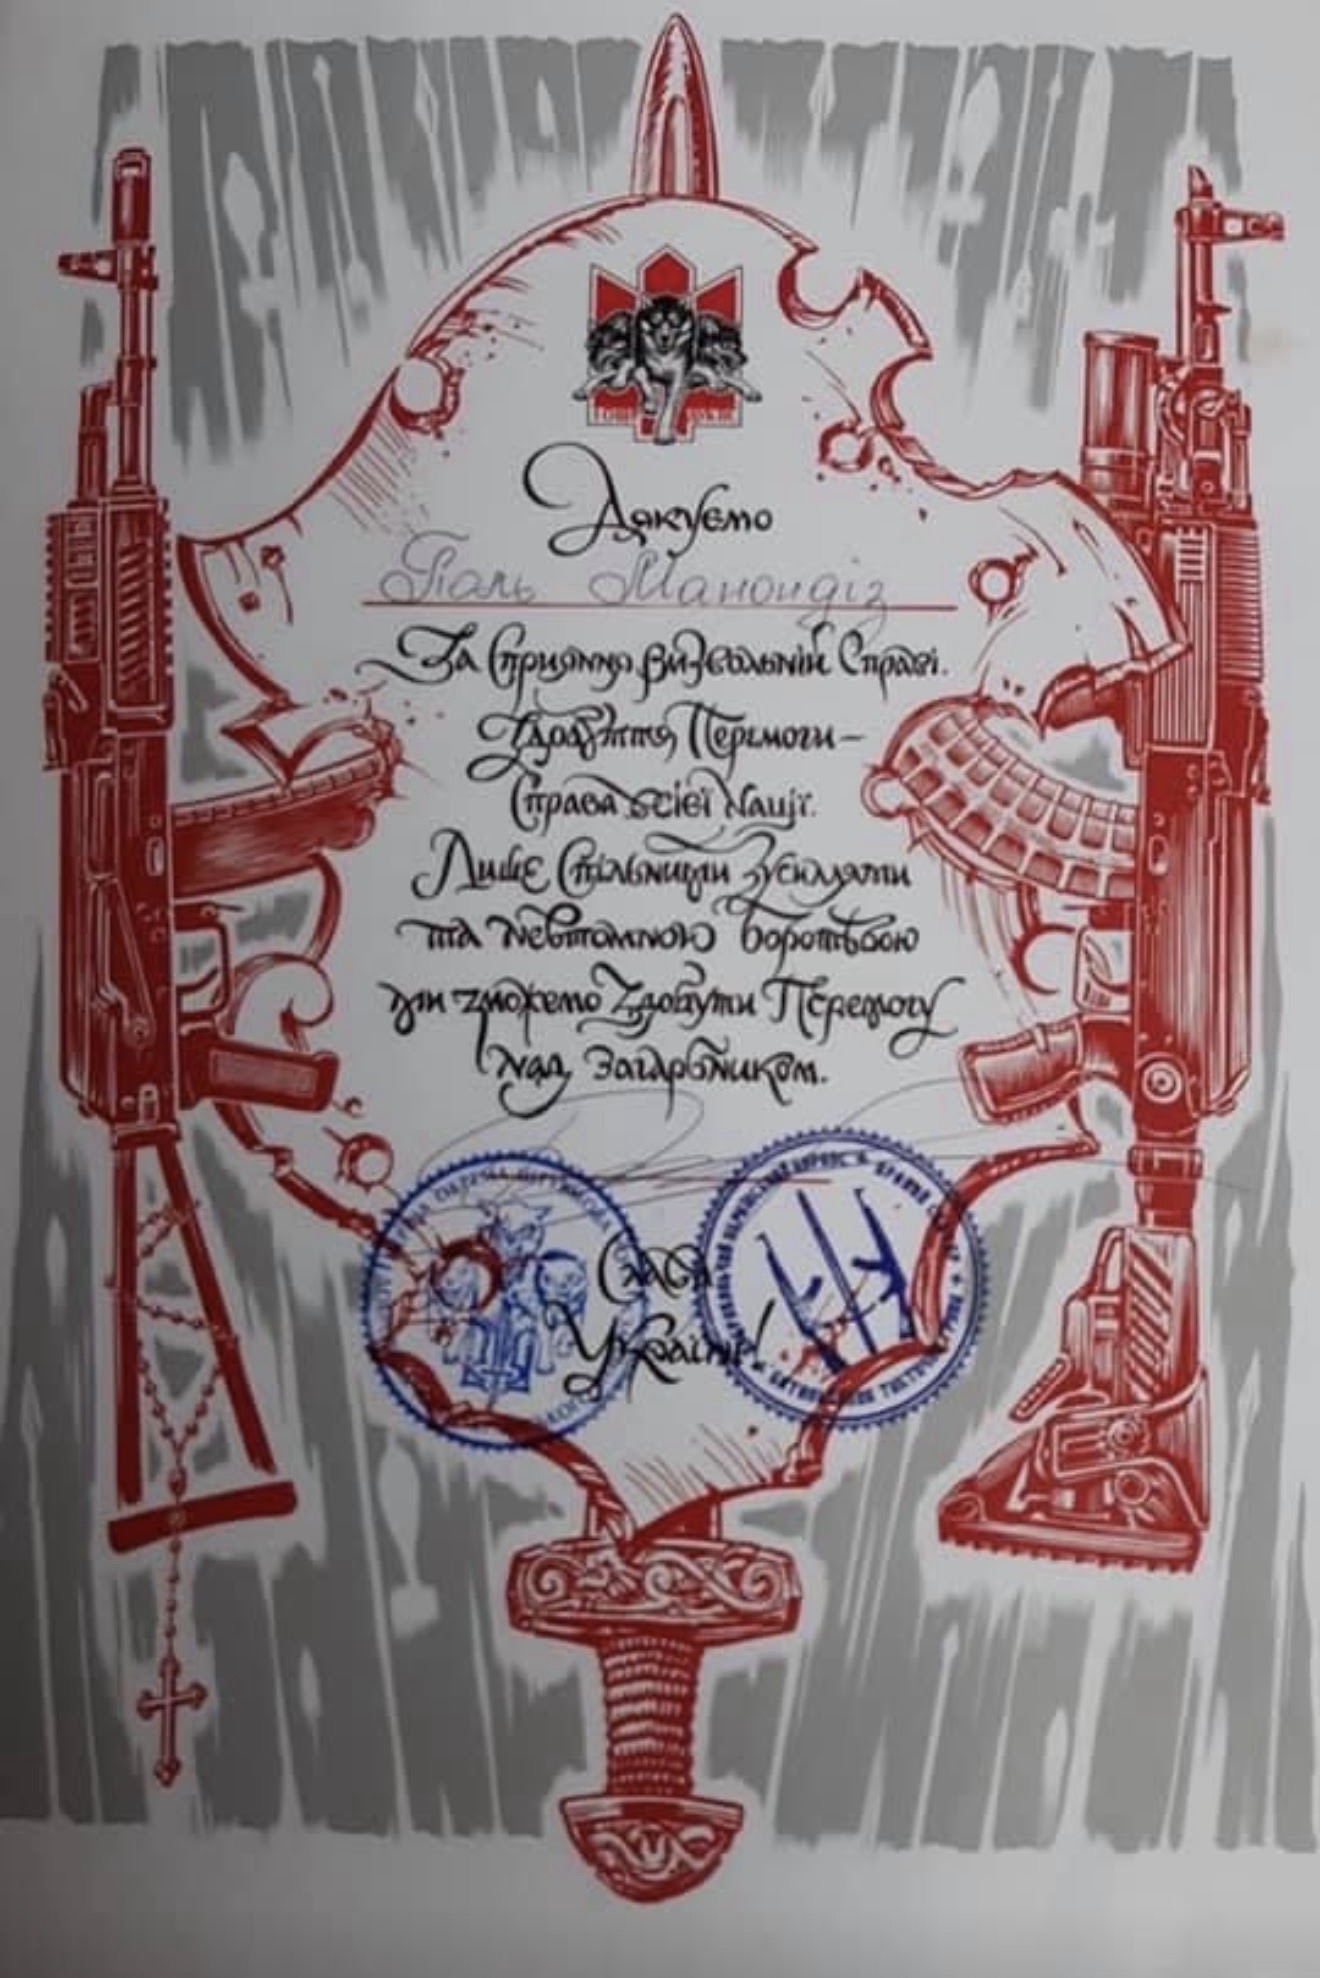 Дякуємо
Поль Манондіз
За сприяння визвольній справі.
Здобуття Перемоги –
справа всієї Нації.
Лише спільними зусиллями
та невтомною боротьбою
ми зможемо здобути Перемогу
над загарбником.
Слава
Україні!